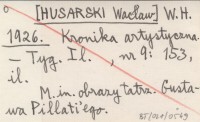 [HUSARSKI Wacław] W.H.
1926. Kronika artystyczna.
– Tyg. Il., nr 9: 153,
il.
M.in. obrazy tatrz. Gusta-
wa Pillati'ego.